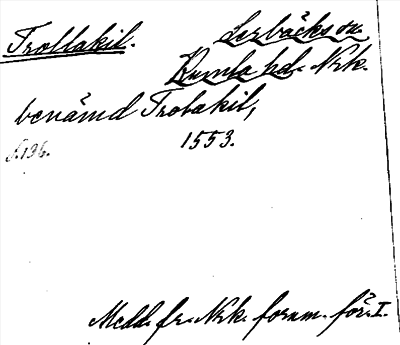 Trollakil. Lerbäcks sn.
Kumla hd. Nrk.
benämd Trolakil,
s. 136. 1553.
Medd. fr. Nrk. fornm. för. I.